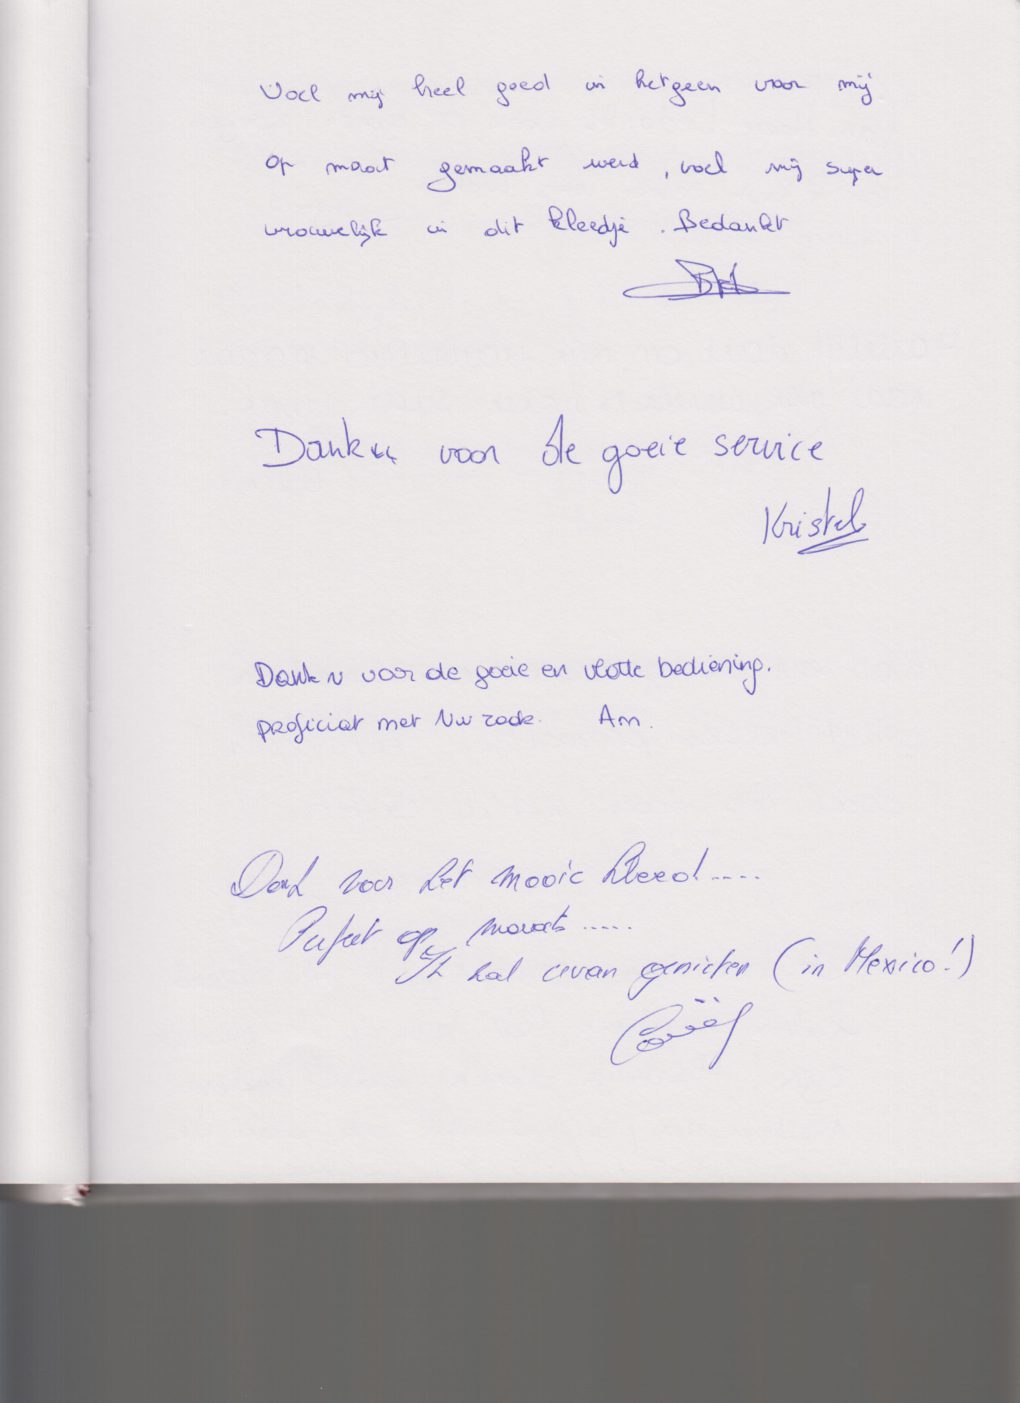 Voel mij heel goed in hetgeen voor mij
op maat gemaakt werd, voel mij super
vrouwelijk in dit kleedje. Bedankt
Dank u voor de goeie service
Kristel
Dank u voor de goeie en vlotte bediening.
proficiat met Uw zaak. An.
Dank voor het mooie kleed.....
Perfect op maat.....
Ik zal ervan genieten (in Mexico!)